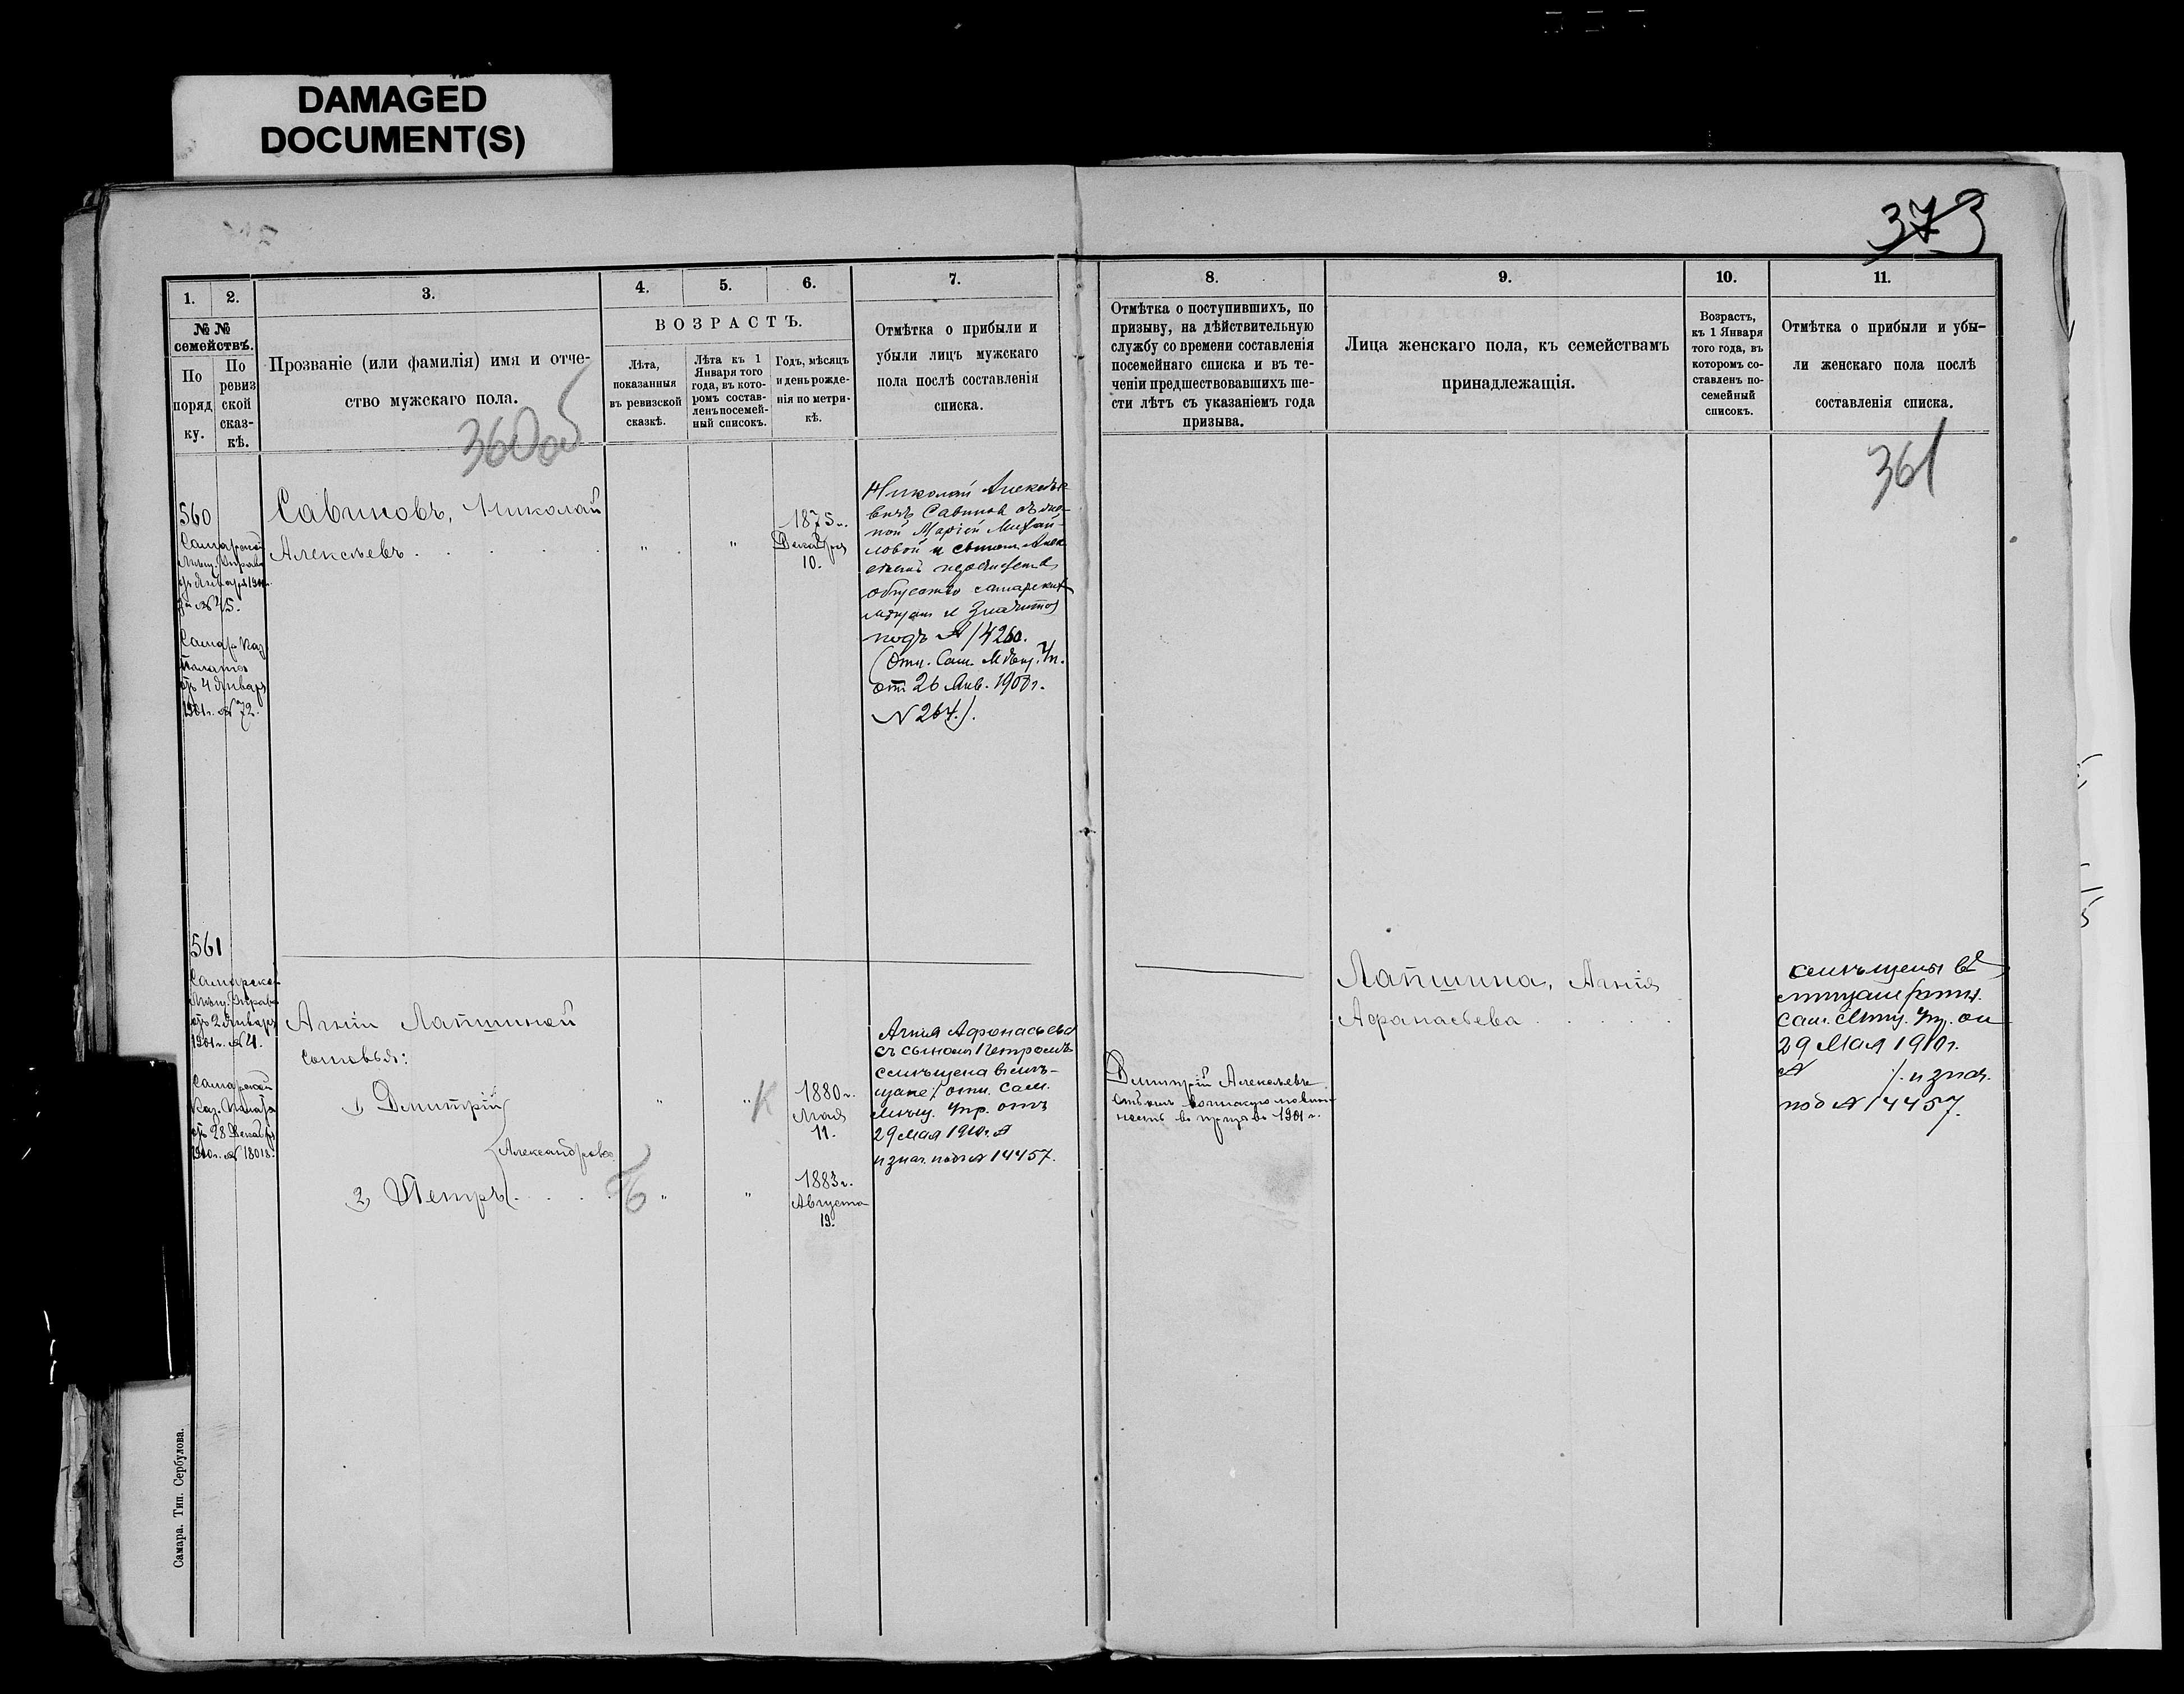 DAMAGED
DOCUMENT(S)
373
1.
2.
3.
4.
5.
6.
7.
№ №
семействъ.
По
поряд
ку.
По
ревиз
ской
сказ-
кѣ.
Прозваніе (или фамилія) имя и отче-
ство мужскаго пола.
ВОЗРАСТЪ.
Лѣта,
показанныя
въ ревизской
сказкѣ.
Лѣта къ 1
Января того
года, въ кото-
ромъ состав-
ленъ посемей-
ный списокъ.
Годъ, мѣсяцъ
и день рожде-
нія по метри-
кѣ.
Отмѣтка о прибыли и
убыли лицъ мужскаго
пола послѣ составленія
списка.
8.
9.
10.
11.
Отмѣтка о поступившихъ, по
призыву, на дѣйствительную
службу со времени составленія
посемейнаго списка и въ те-
ченіи предшествовавшихъ ше-
сти лѣтъ съ указаніемъ года
призыва.
Лица женскаго пола, къ семействамъ
принадлежащія.
Возрастъ,
къ 1 Января
того года, въ
которомъ со-
ставленъ по-
семейный
списокъ.
Отмѣтка о прибыли и убы-
ли женскаго пола послѣ
составленія списка.
360об
361
560
Самарской
Мѣщ. Управы
за № 45.
Самар. Каз.
Палаты
отъ 4 Января
1901 г. № 72.
Савиновъ, Николай
Алексѣевъ
" "
1875 г.
Декабря
10.
Николай Алексѣе-
вичъ Савиновъ съ же-
ной Маріей Михай-
ловой и сыномъ Алек
общество самарскихъ
мѣщан и значится
подъ № 14260.
(Отн. Сам. Мѣщ. Уп.
от 26 Янв. 1908 г.
N 264.).
561
Самарской
Мѣщ. Управы
отъ 2 Января
1901 г. № 4.
Самарской
Каз. Палаты
отъ 28 Декабря
1900 г. № 18018.
Агніи Лапшиной
сыновья:
1, Дмитрій
Александровы
2, Петръ
" "
К
1880 г.
Мая
11.
" "
1883 г.
Августа
19.
Агнія Афонасьева
съ сыномъ Петромъ
щане / отн. Сам.
Мѣщ. Упр. отъ
29 Мая 1910 г. №
и знач. подъ № 14457.
Дмитрій Алексѣевъ
воинскую повин
ность въ призывъ 1901 г.
Лапшина, Агнія
Афанасьева
Сам. Мѣщ. Уп. от
29 Мая 1910 г.
№ /. и знач.
под № 14457.
Самара. Тип. Сербулова.